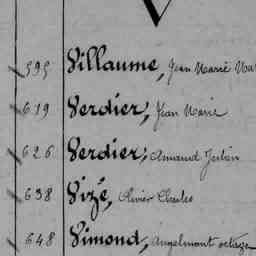 V
595 Villaume, Jean Marie
619 Verdier, Jean Marie
626 Verdier, Armand Julien
638 Vizé, Olivier Charles
648 Vimond, Angelmont octave